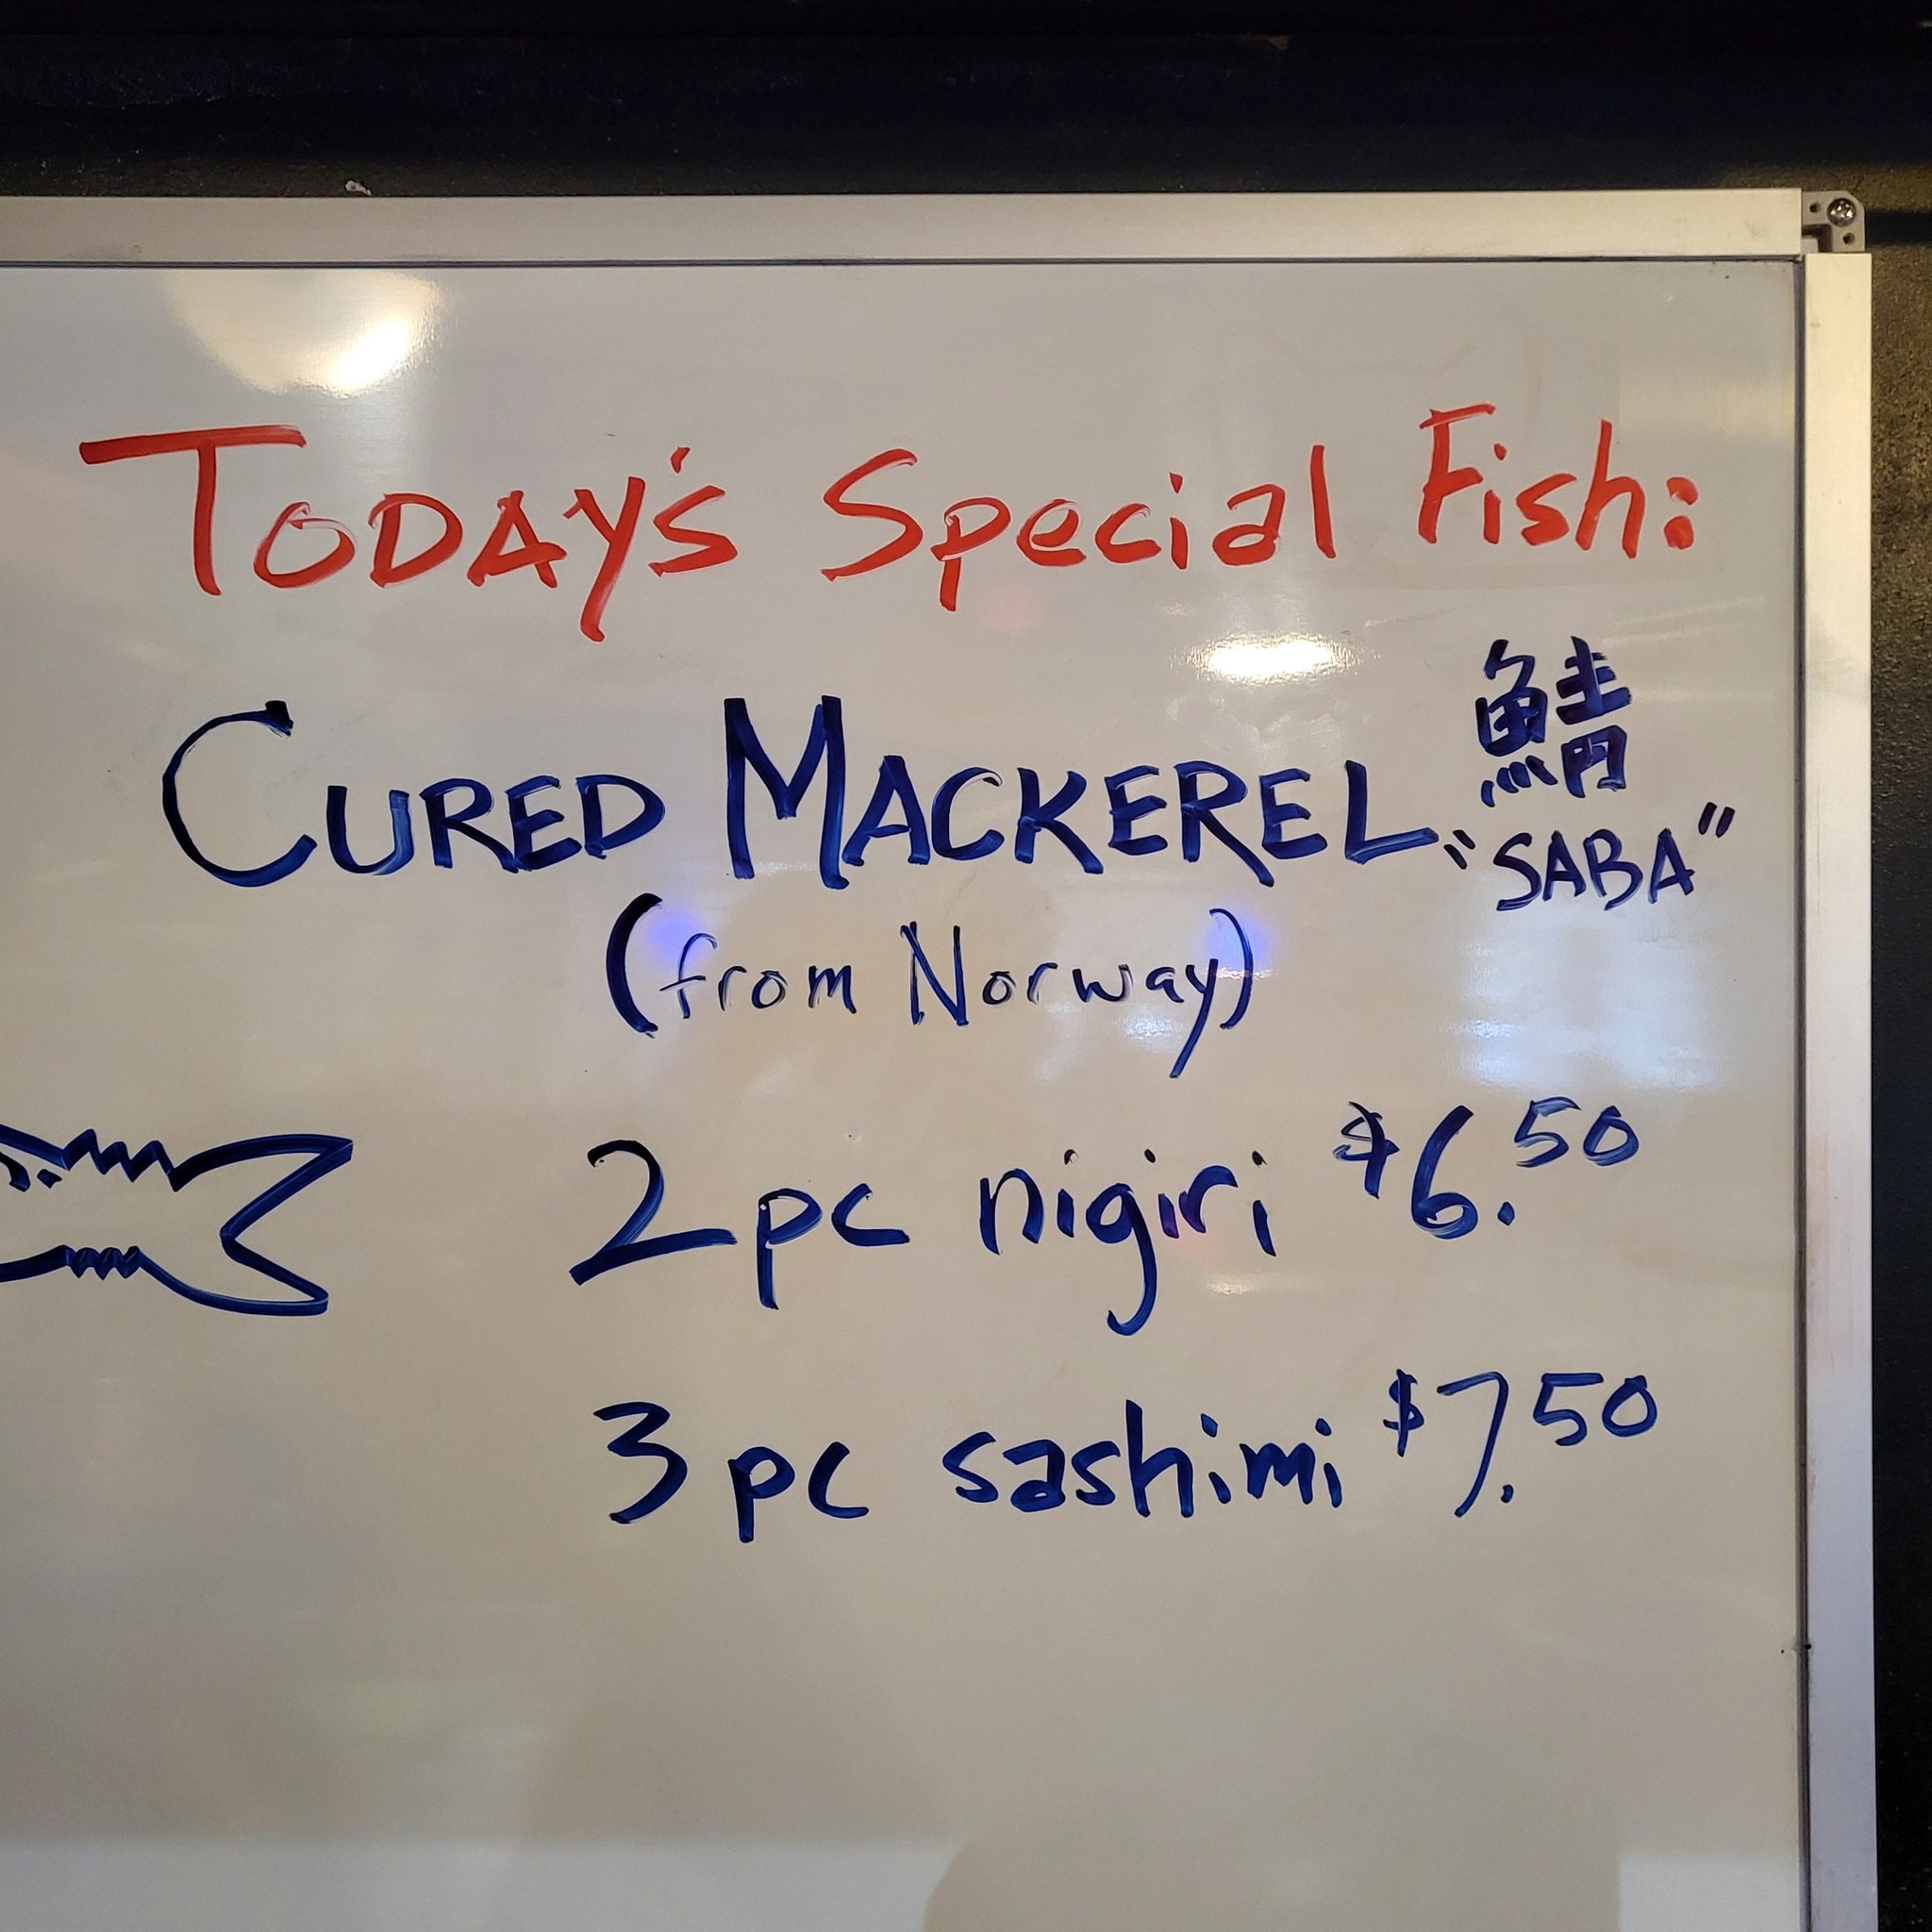 Today's Special Fish:
Cured Mackerel 鯖
"SABA"
(from Norway)
2 pc nigiri $6.50
3 pc sashimi $7.50